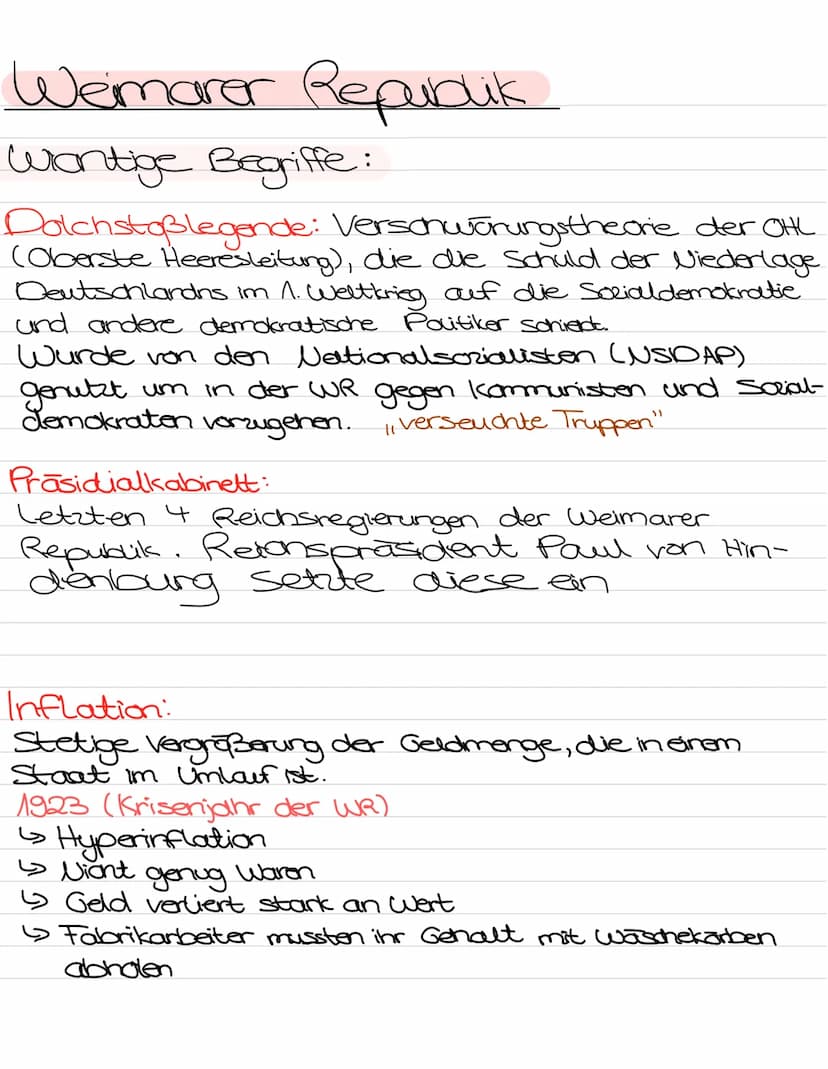 Weimarer Republik
Wichtige Begriffe:
Dolchstoßlegende: Verschwörungstheorie der OHL
(Oberste Heeresleitung), die die Schuld der Niederlage
Deutschlardns im 1. Weltkrieg auf die Sozialdemokratie
und andere demokratische Politiker schiebt.
Wurde von den Nationalsozialisten (NSDAP)
genutzt um in der WR gegen Kommunisten und Sozial-
demokraten vorzugehen. „verseuchte Truppen"
Präsidialkabinett:
Letzten 4 Reichsregierungen der Weimarer
Republik. Reichspräsident Paul von Hin-
denburg setzte diese ein
Inflation:
Stetige Vergrößerung der Geldmenge, die in einem
Staat im Umlauf ist.
1923 (Krisenjahr der WR)
↳ Hyperinflation
↳ Nicht genug Waren
↳ Geld verliert stark an Wert
↳ Fabrikarbeiter mussten ihr Gehalt mit Wäschekörben
abholen